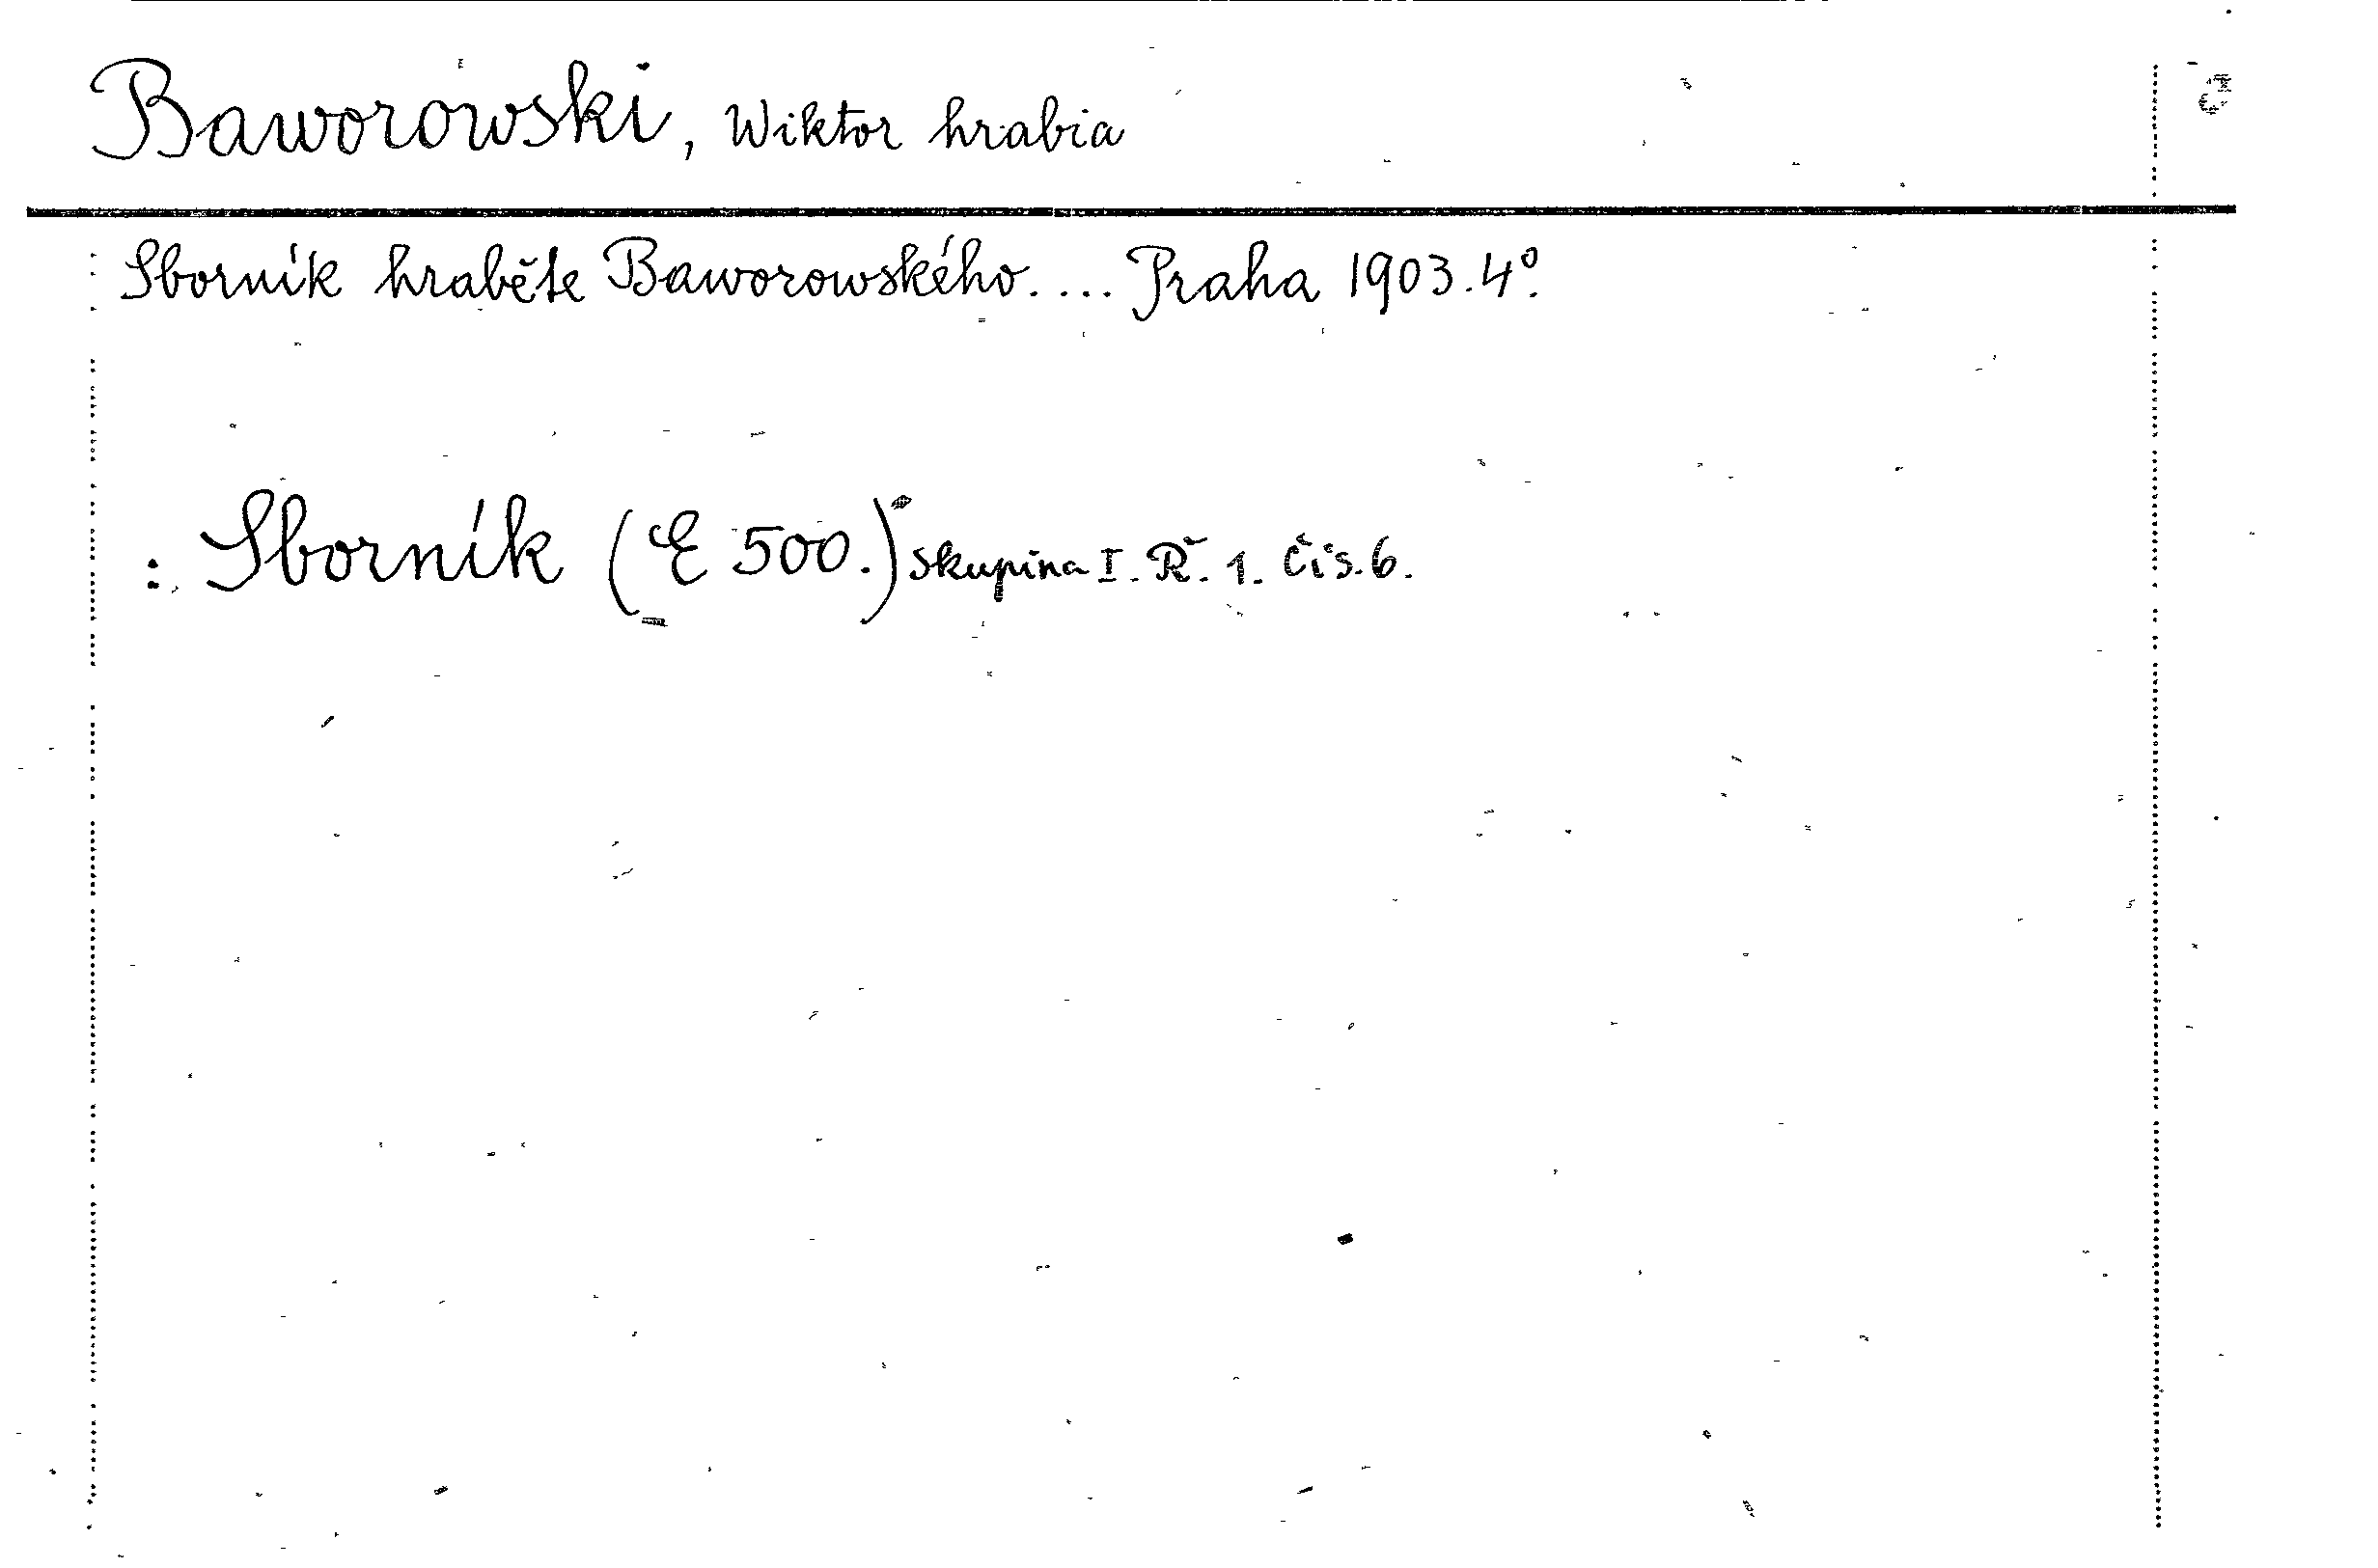 Baworowski, Wiktor hrabia
Sborník hraběte Baworowského.... Praha 1903. 4º.
: Sborník (E 500.) skupina I. Ř. 1. Čís. 6.